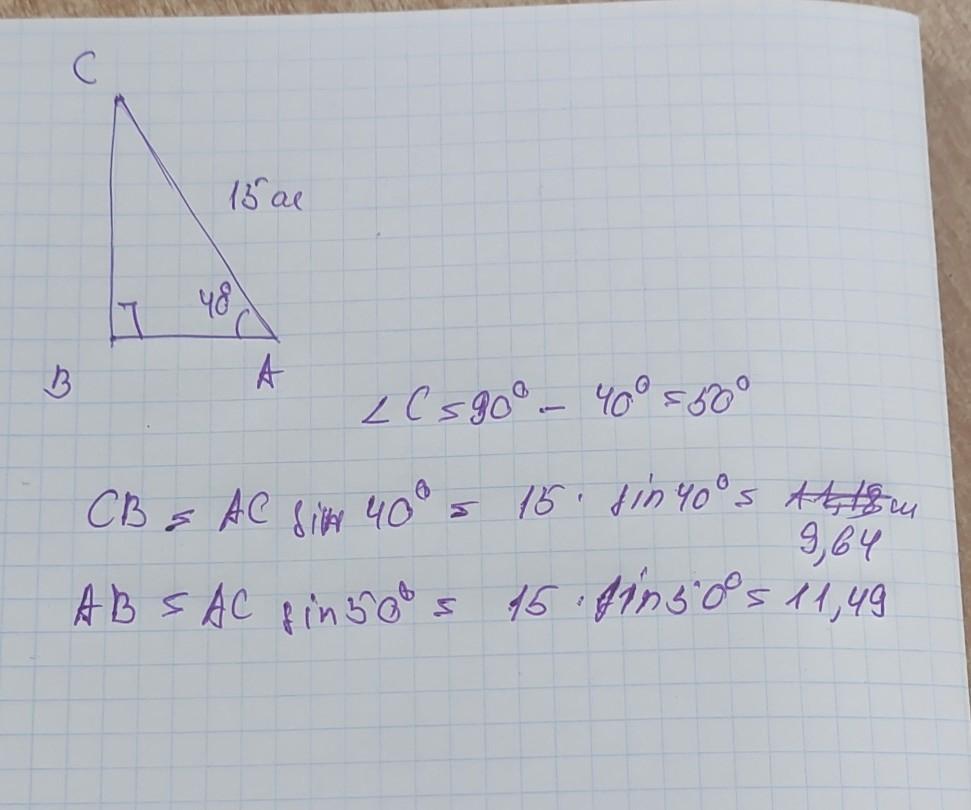 C
15 м
48
B
A
∠C = 90° - 40° = 50°
CB = AC sin 40° = 15 · sin 40° = 11,18 м
9,64
AB = AC sin 50° = 15 · sin 50° = 11,49